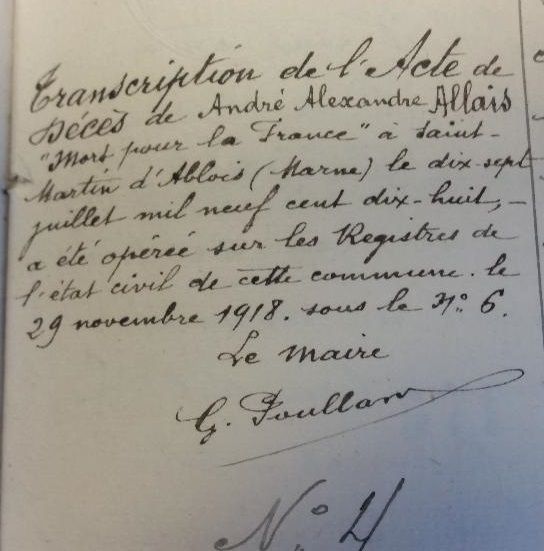 Transcription de l'Acte de
Décès de André Alexandre Allais
"Mort pour la France" à Saint-
Martin d'Ablois (Marne) le dix-sept
juillet mil neuf cent dix-huit, –
a été opérée sur les Registres de
l'état civil de cette commune. le
29 novembre 1918. sous le N° 6.
Le Maire
G.
N° 4